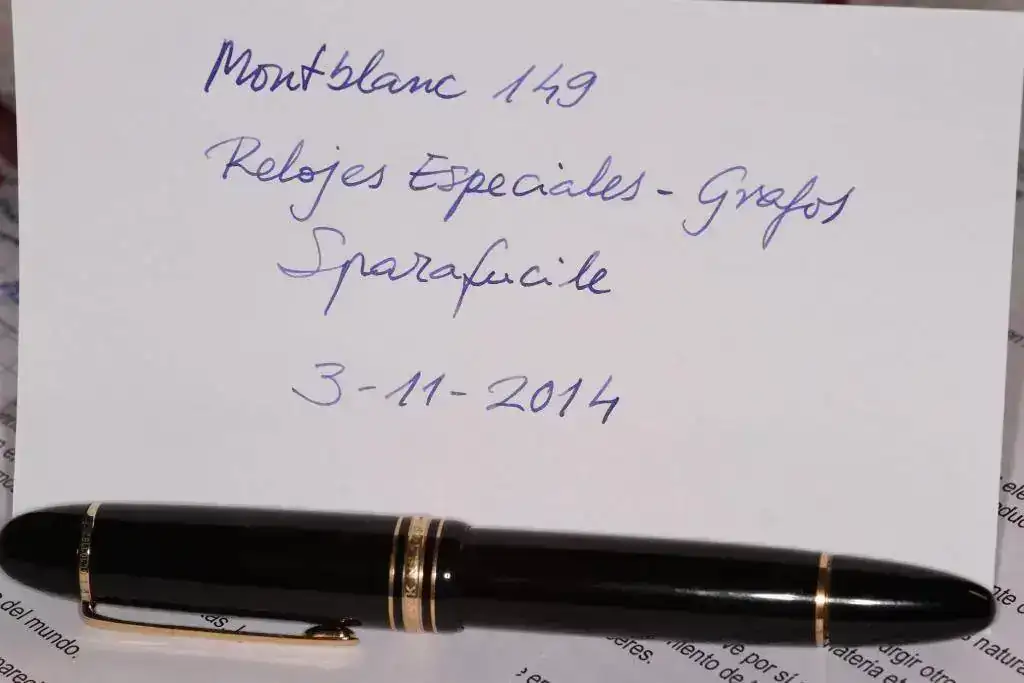 Montblanc 149
Relojes Especiales - Grafos
Sparafucile
3-11-2014
del mundo.
ceres.
ve por sí
materia
surgir otro
natura